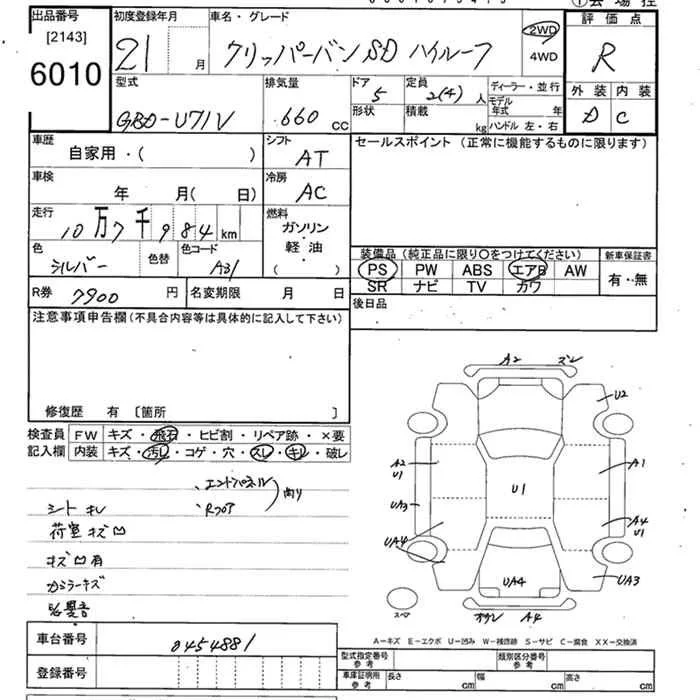 出品番号
[2143]
6010
初度登録年月
21 月
車名・グレード
クリッパーバン SD ハイルーフ
2WD
4WD
評価点
R
型式
GBD-U71V
排気量
660 cc
ドア
5
形状
定員
2(4) 人
積載 kg
ディーラー・並行
モデル年式 年
ハンドル 左・右
外装 内装
D C
車歴
自家用・( )
シフト
AT
セールスポイント (正常に機能するものに限ります)
車検
年 月( 日)
冷房
AC
走行
10万7千984km
燃料
ガソリン
・
軽・油
・
( )
色
シルバー
色替
色コード
A31
装備品 (純正品に限り○をつけてください)
PS PW ABS エアB AW
SR ナビ TV カワ
新車保証書
有・無
R券 7900 円
名変期限 月 日
後日品
注意事項申告欄(不具合内容等は具体的に記入して下さい)
修復歴 有 〔箇所 〕
検査員記入欄
FW キズ・飛石・ヒビ割・リペア跡・×要
内装 キズ・汚し・コゲ・穴・スレ・キレ・破レ
・エンドパネル
・Rフロア
シート キレ
荷室 キズ凹
キズ凹有
A2 ズレ
U2
A2
U1
A1
U1
UA3
A4
U1
UA4
UA4
UA3
スペア
A4
A－キズ E－エクボ U－凹み W－補修跡 S－サビ C－腐食 XX－交換済
車台番号 0454881
登録番号
型式指定番号 参考
類別区分番号 参考
車庫証明用 参考
長さ cm
幅 cm
高さ cm